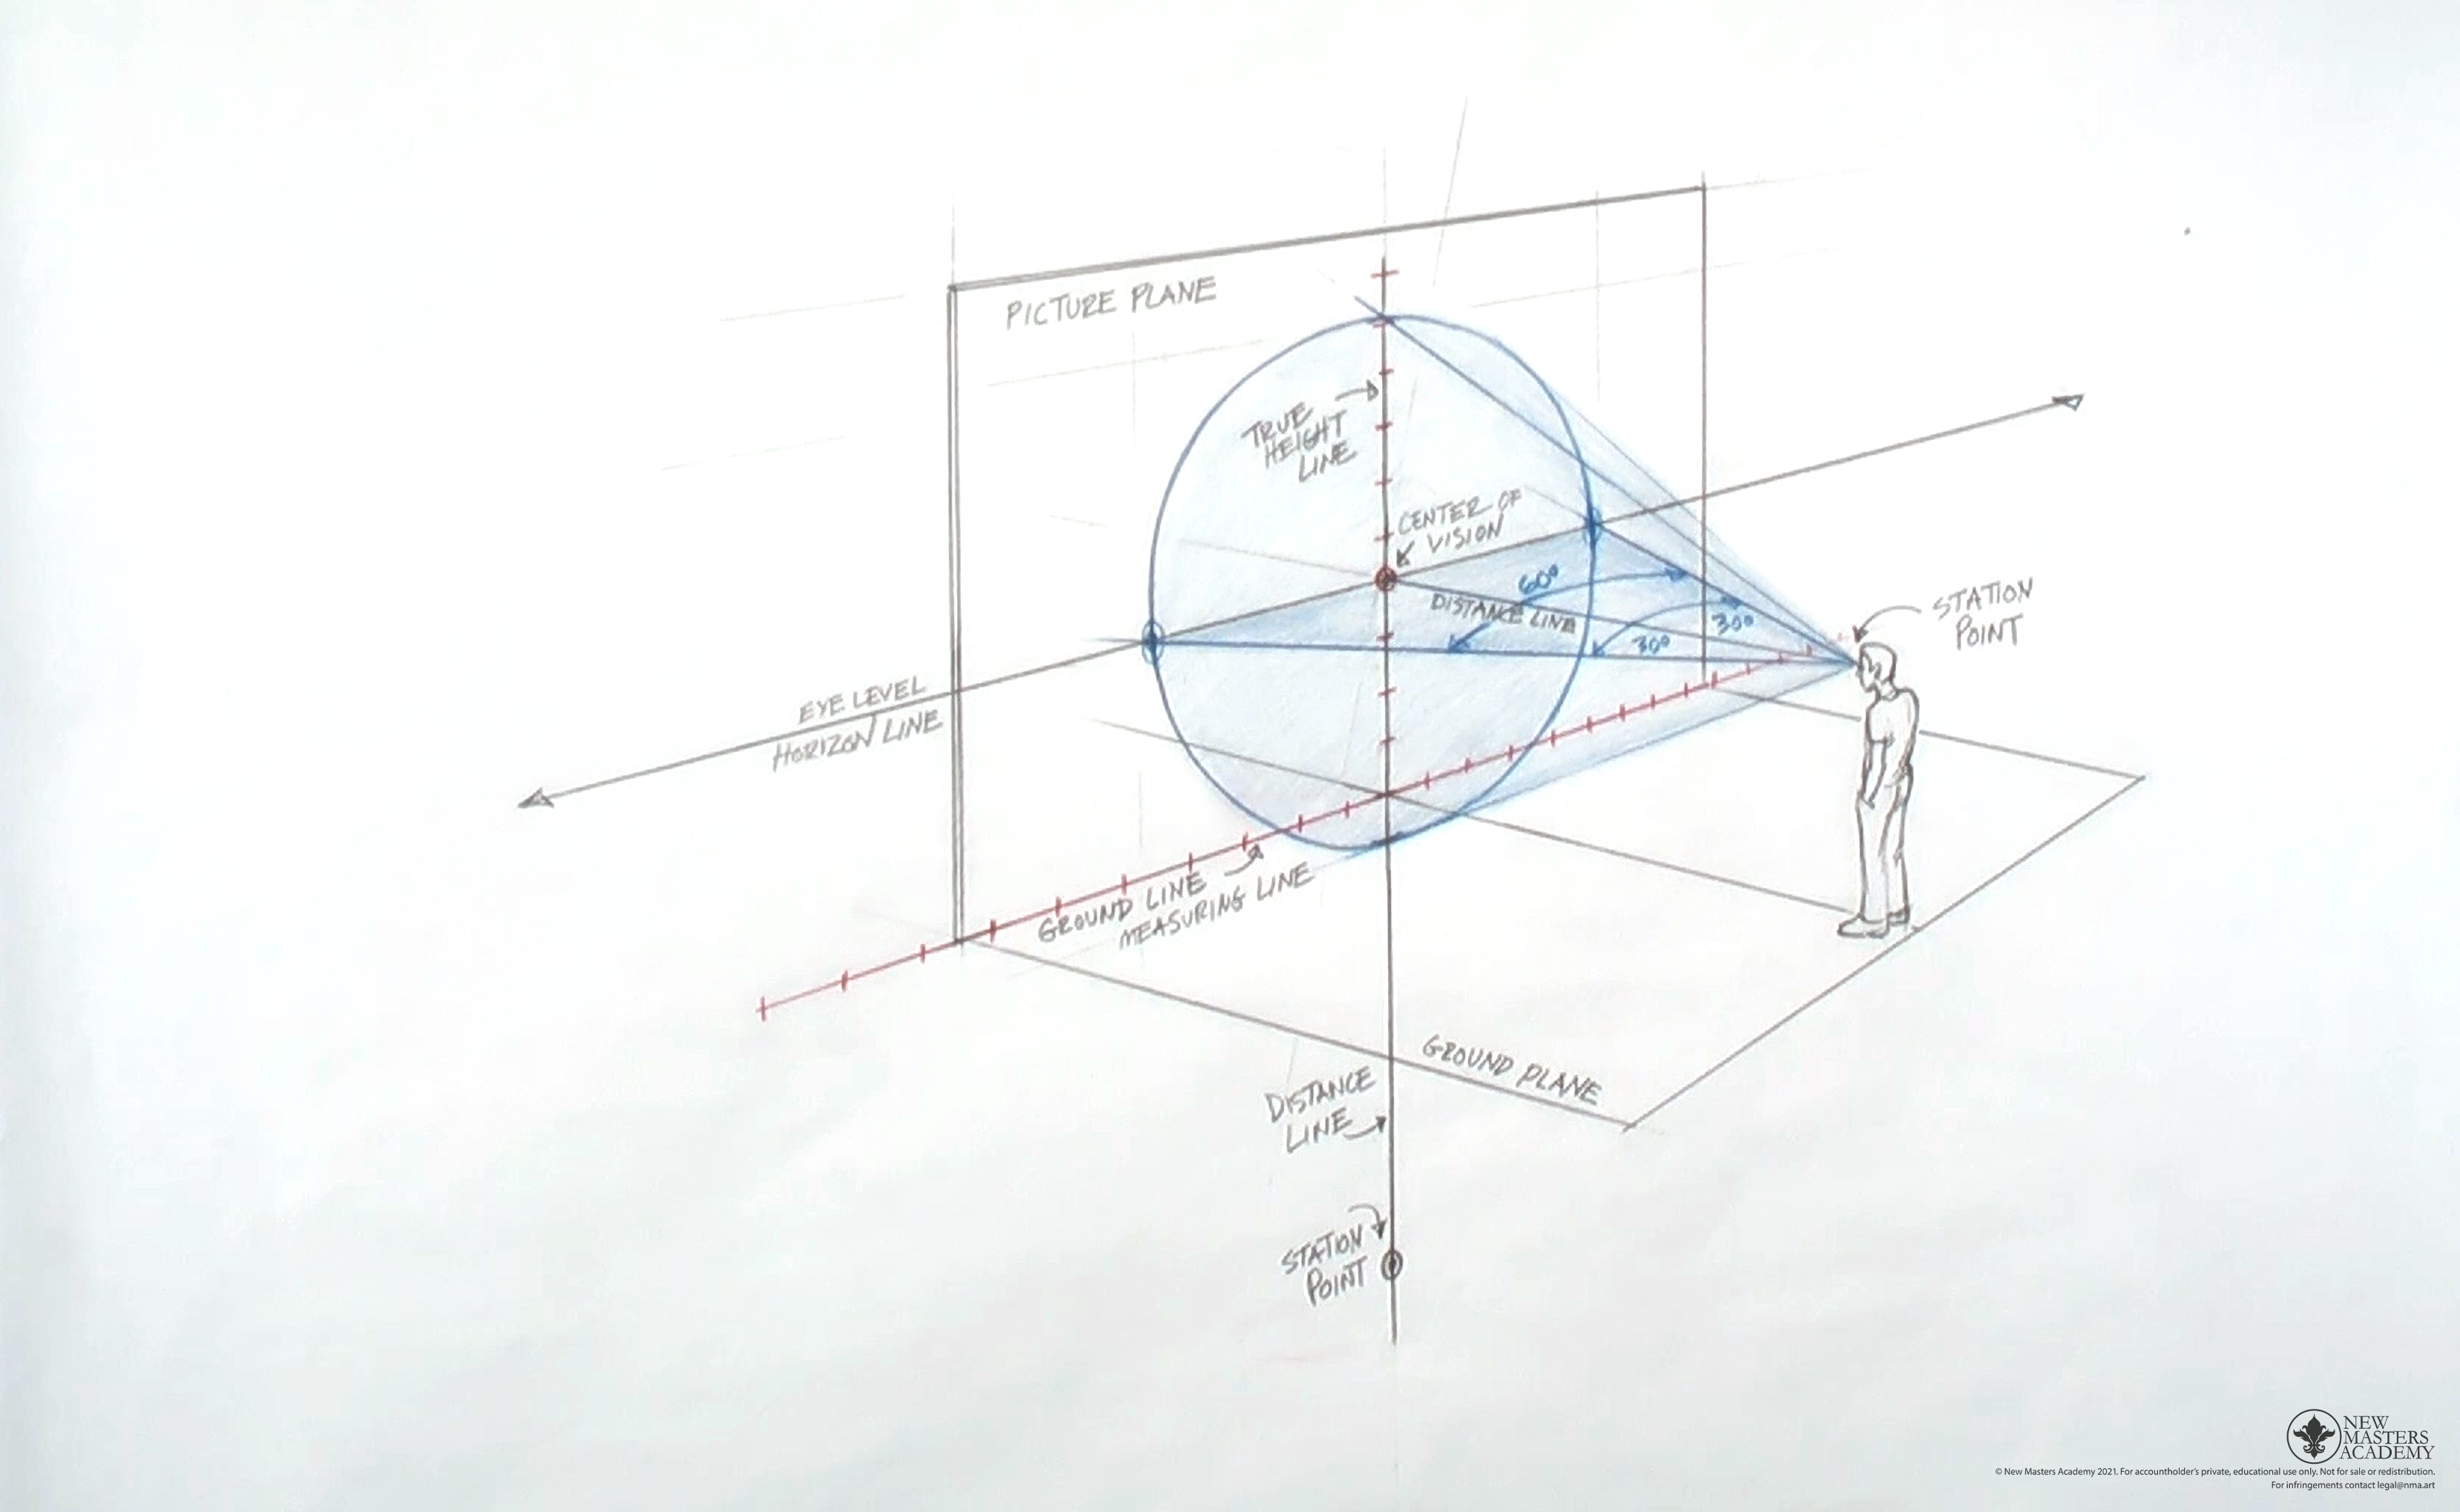 PICTURE PLANE
TRUE
HEIGHT
LINE
CENTER OF
VISION
60°
DISTANCE LINE
30°
30°
STATION
POINT
EYE LEVEL
HORIZON LINE
GROUND LINE
MEASURING LINE
GROUND PLANE
DISTANCE
LINE
STATION
POINT
NEW
MASTERS
ACADEMY
© New Masters Academy 2021. For accountholder's private, educational use only. Not for sale or redistribution.
For infringements contact legal@nma.art